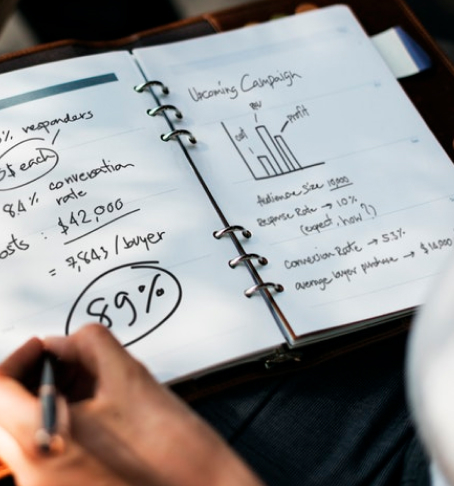 % responders
$ each
84% conversation
rate
osts : $42,000
= 7,843 / buyer
89%
Upcoming Campaign
profit
Audience Size 10,000
Response Rate → 10%
(expect, how?)
conversion Rate → 5.3%
average buyer purchase → $10,000